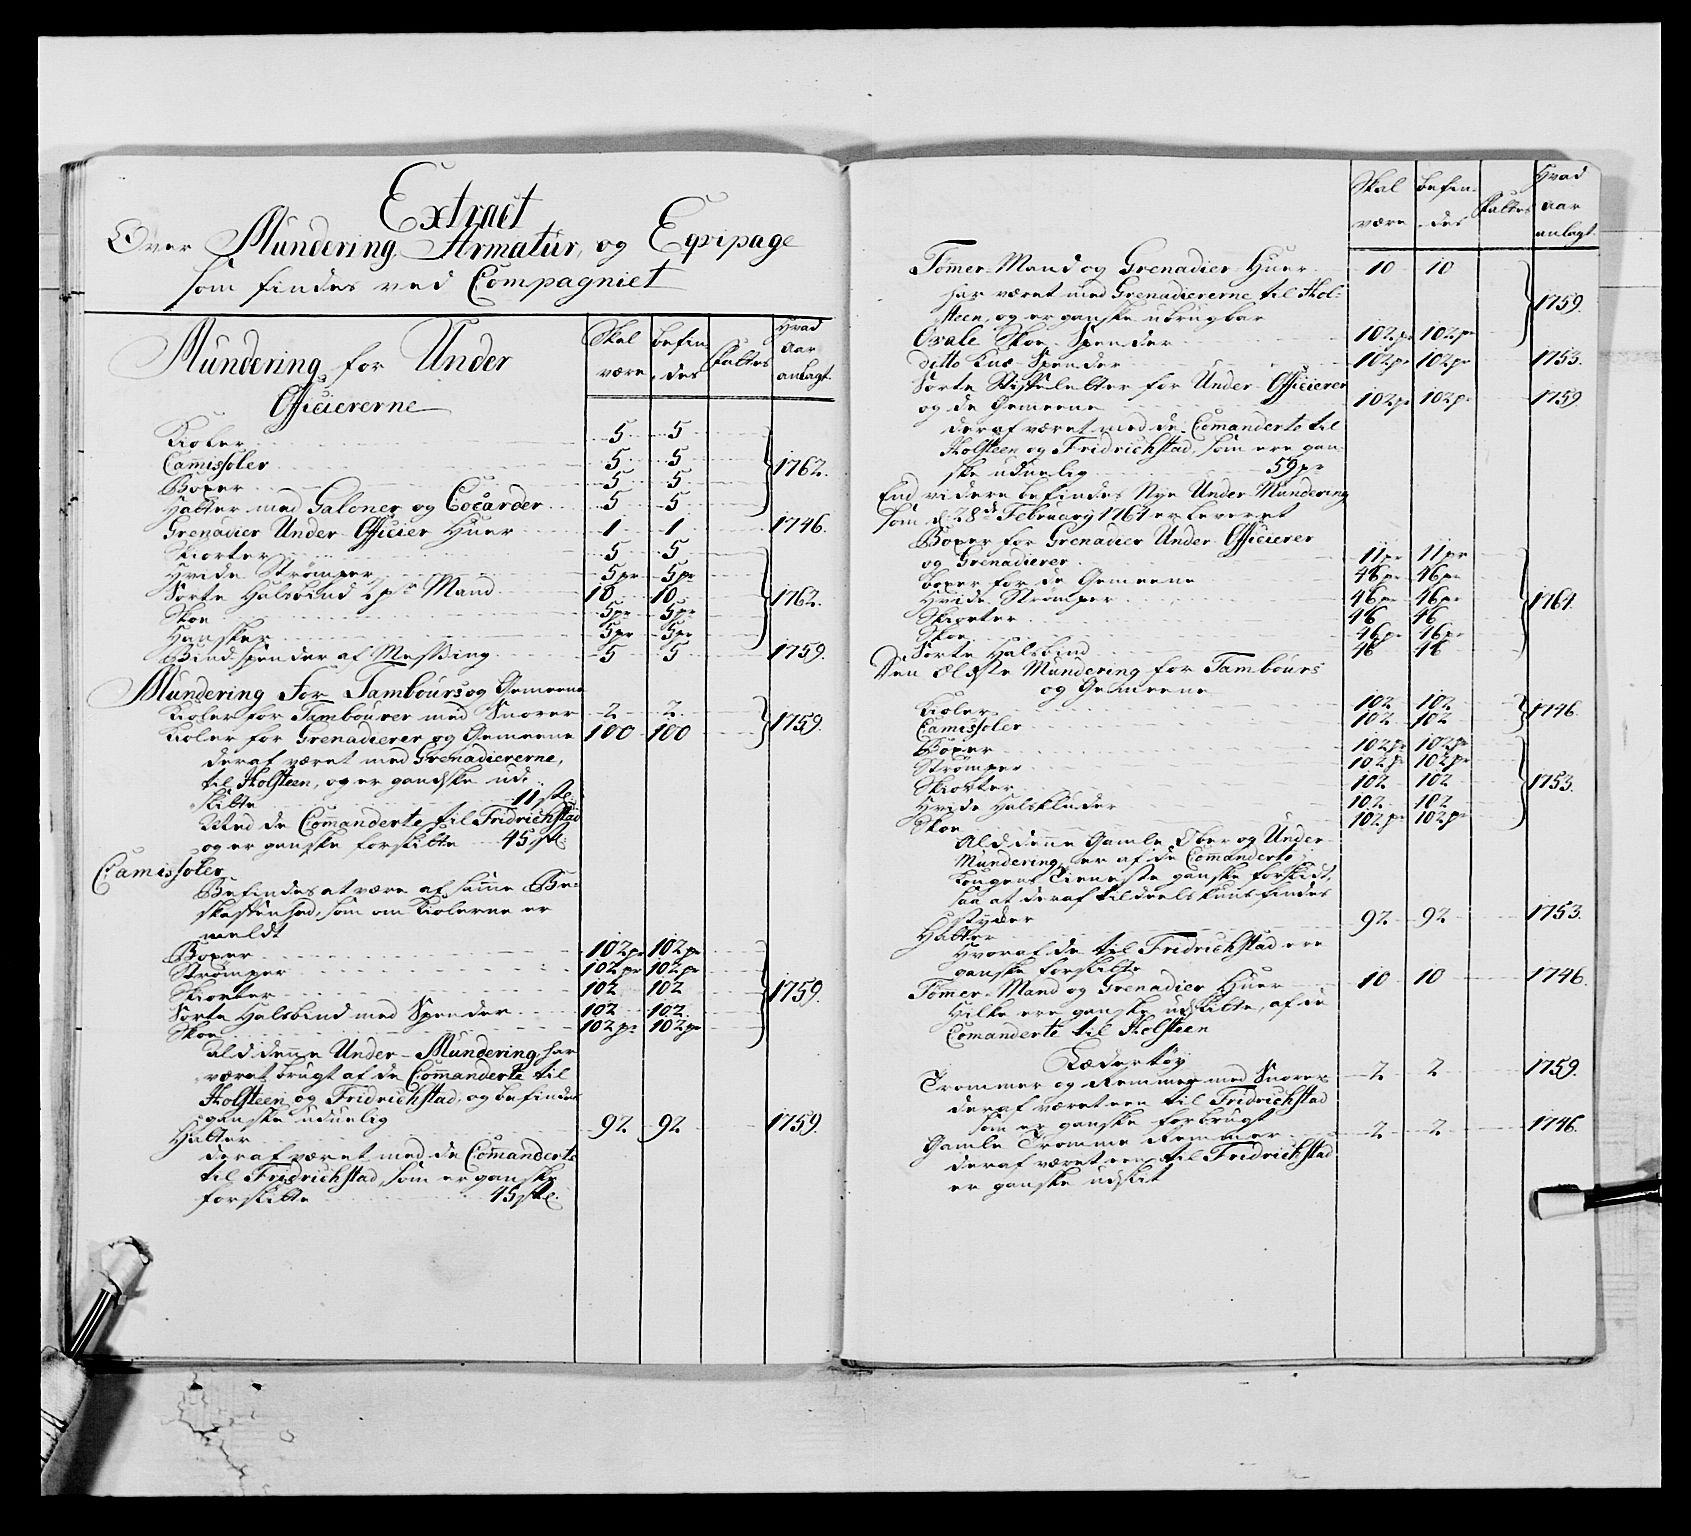 Extract
Over Mundering, Armatur, og Eqvipage
som findes ved Compagniet
Skal være
befindes
fattes
Hvad Aar anlagt
Mundering for Under
Officiererne
Kioler 5 5
Camissoler 5 5 1762.
Boxer 5 5
Hatter med Galoner og Cocarder 5 5
Grenadier Under Officier Huer 1 1 1746.
Skiorter 5 5
Hvide Strømper 5pr 5pr
Sorte Halsbind 2 pr Mand 10 10 1762.
Skoe 5pr 5pr
Hansker 5pr 5pr
Bind-spender af Messing 5 5 1759.
Mundering For Tambours og Gemeene
Kioler for Tambourer med Snorer 2 2 1759.
Kioler for Grenadierer og Gemeene 100 100
deraf været med Grenadiererne,
til Holsteen, og er gandske ud-
slitte 11 stk.
Med de Commanderte til Fridrichstad
og er ganske forslitte 45 stk.
Camissoler
Befindes at være af samme Be-
skaffenhed, som om Kiolerne er
meldt
Boxer 102pr 102pr
Strømper 102pr 102pr
Skiorter 102 102 1759.
Sorte Halsbind med Spender 102 102
Skoe 102pr 102pr
Ald denne Under-Mundering har
været brugt af de Commanderte til
Holsteen og Fridrichstad, og befindes
ganske uduelig
Hatter 92 92 1759.
deraf været med de Commanderte
til Fridrichstad, som er ganske
forslitte 45 stk.
Skal være
befindes
fattes
Hvad Aar anlagt
Tømer-Mand og Grenadier Huer 10 10
har været med Grenadiererne til Hol-
steen, og er ganske ubrugbar 1759.
Ovale Skoe-Spender 102pr 102pr
ditto Knæ-Spender 102pr 102pr 1753.
Sorte Stiffeletter for Under-Officierer
og de Gemeene 102pr 102pr 1759
deraf været med de Comanderte til
Holsteen og Fridrichstad, som ere gan-
ske uduelig 59pr
End videre befindes Nye Under-Mundering
som d. 28de February 1764 er leveret
Boxer for Grenadier Under-Officierer
og Grenadierer 11pr 11pr
boxer for de Gemeene 46pr 46pr
Hvide Strømper 46pr 46pr 1764.
Skiorter 46 46
Skoe 46pr 46pr
Sorte Halsbind 46 46
Den Eldste Mundering for Tambours
og Gemeene
Kioler 102 102 1746.
Camissoler 102 102
Boxer 102pr 102pr
Strømper 102pr 102pr
Skiorter 102 102 1753.
Hvide Halskluder 102 102
Skoe 102pr 102pr
Ald denne Gamle Over og Under
Mundering, er af de Comanderte i
Kongens Tieneste ganske forslidt,
saa at deraf tildeels kuns findes
stycker
Hatter 92 92 1753.
Hvoraf de til Fridrichstad ere
ganske forslitte
Tømer-Mand og Grenadier Huer 10 10 1746.
Hvilke ere ganske udslitte, af de
Comanderte til Holsteen
Lædertøy
Trommer og Remmer med Snorer 2 2 1759.
deraf været een til Fridrichstad
som er ganske forbrugt
Gamle Tromme Remmer 2 2 1746.
deraf været een til Fridrichstad
er ganske udslit